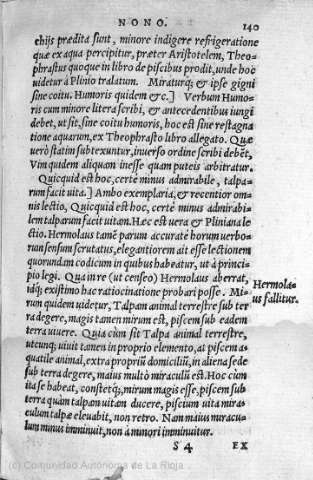 NONO.
140
chijs prædita sunt, minore indigere refrigeratione
quæ ex aqua percipitur, præter Aristotelem, Theo-
phrastus quoque in libro de piscibus prodit, unde hoc
uidetur à Plinio tralatum. Miraturq; & ipse gigni
sine coitu. Humoris quidem &c.] Verbum Humo-
ris cum minore litera scribi, & antecedentibus iungi
debet, ut sit, sine coitu humoris, hoc est sine restagna
tione aquarum, ex Theophrasto libro allegato. Quæ
uerò statim subtexuntur, inuerso ordine scribi debẽt,
Vim quidem aliquam inesse quam puteis arbitratur.
Quicquid est hoc, certè minus admirabile, talpa-
rum facit uita.] Ambo exemplaria, & recentior om-
nis lectio, Quicquid est hoc, certè minus admirabi-
lem talparum facit uitam. Hæc est uera & Pliniana le
ctio. Hermolaus tamẽ parum accuratè horum uerbo-
rum sensum scrutatus, elegantiorem ait esse lectionem
quorundam codicum in quibus habeatur, ut à princi-
pio legi. Qua in re (ut censeo) Hermolaus aberrat,
idq; existimo hac ratiocinatione probari posse. Mi-
rum quidem uidetur, Talpam animal terrestre sub ter
ra degere, magis tamen mirum est, piscem sub eadem
terra uiuere. Quia cùm sit Talpa animal terrestre,
utcunq; uiuit tamen in proprio elemento, at piscem a-
quatile animal, extra propriũ domiciliũ, in aliena sede
sub terra degere, maius multò miraculũ est. Hoc cùm
ita se habeat, constetq;, mirum magis esse, piscem sub
terra quàm talpam uitam ducere, piscium uita mira-
culum talpæ eleuabit, non retro. Nam maius miracu-
lum minus imminuit, non à minori imminuitur.
Hermola-
us fallitur.
S 4
EX
(c) Comunidad Autónoma de La Rioja